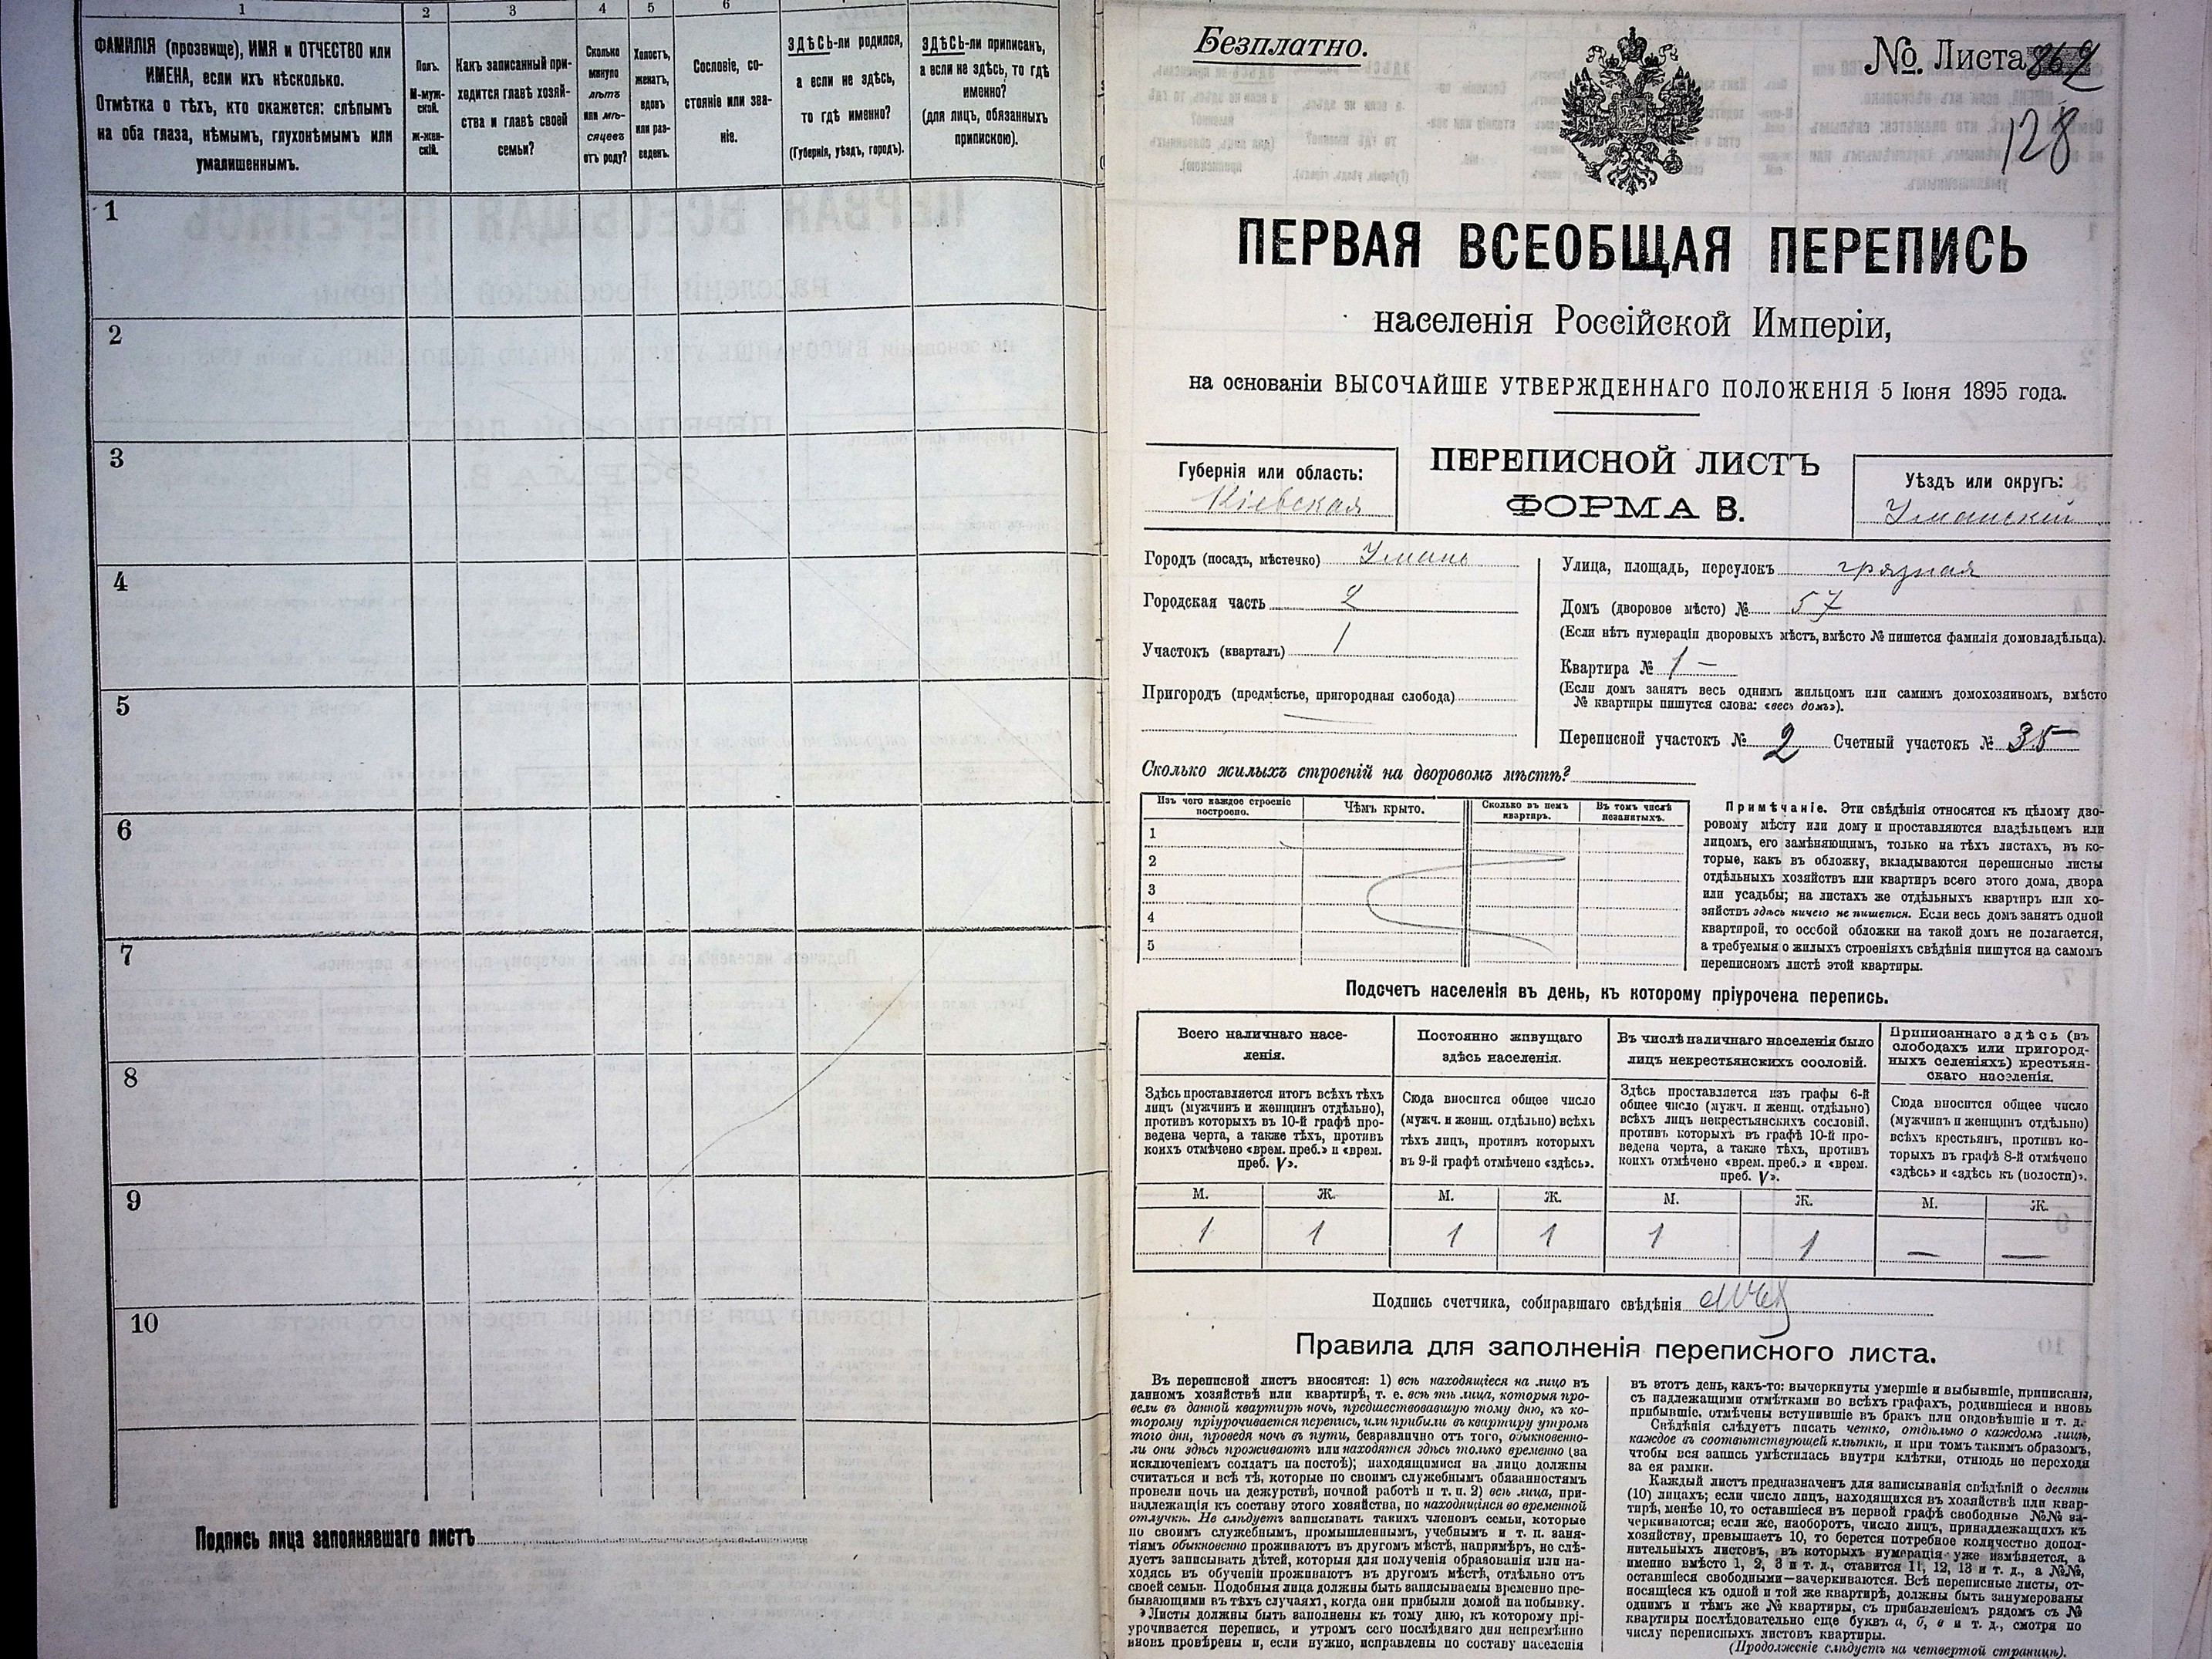 1 2 3 4 5 6
ФАМИЛІЯ (прозвище), ИМЯ и ОТЧЕСТВО или
ИМЕНА, если ихъ нѣсколько.
Отмѣтка о тѣхъ, кто окажется: слѣпымъ
на оба глаза, нѣмымъ, глухонѣмымъ или
умалишеннымъ.
Полъ.
М-муж-
ской.
Ж-жен-
скій.
Какъ записанный при-
ходится главѣ хозяй-
ства и главѣ своей
семьи?
Сколько
минуло
лѣтъ
или мѣ-
сяцевъ
отъ роду?
Холостъ,
женатъ,
вдовъ
или раз-
веденъ.
Сословіе, со-
стояніе или зва-
ніе.
ЗДѢСЬ-ли родился,
а если не здѣсь,
то гдѣ именно?
(Губернія, уѣздъ, городъ).
ЗДѢСЬ-ли приписан,
а если не здѣсь, то гдѣ
именно?
(для лицъ, обязанныхъ
припискою).
1
2
3
4
5
6
7
8
9
10
Подпись лица заполнявшаго листъ
Безплатно.
№ Листа
128
ПЕРВАЯ ВСЕОБЩАЯ ПЕРЕПИСЬ
населенія Россійской Имперіи,
на основаніи ВЫСОЧАЙШЕ УТВЕРЖДЕННАГО ПОЛОЖЕНІЯ 5 Іюня 1895 года.
Губернія или область:
Кіевская
ПЕРЕПИСНОЙ ЛИСТЪ
ФОРМА В.
Уѣздъ или округъ:
Уманскій
Городъ (посадъ, мѣстечко) Умань
Городская часть 2
Участокъ (кварталъ) 1
Пригородъ (предмѣстье, пригородная слобода)
Улица, площадь, переулокъ грязная
Домъ (дворовое мѣсто) № 57
(Если нѣтъ нумераціи дворовыхъ мѣстъ, вмѣсто № пишется фамилія домовладѣльца).
Квартира № 1 —
(Если домъ занятъ весь однимъ жильцомъ или самимъ домохозяиномъ, вмѣсто
№ квартиры пишутся слова: «весь домъ»).
Переписной участокъ № 2 Счетный участокъ № 35
Сколько жилыхъ строеній на дворовомъ мѣстѣ?
Изъ чего каждое строеніе
построено.
Чѣмъ крыто.
Сколько въ немъ
квартиръ.
Въ томъ числѣ
незанятыхъ.
1
2
3
4
5
Примѣчаніе. Эти свѣдѣнія относятся къ цѣлому дво-
ровому мѣсту или дому и проставляются владѣльцемъ или
лицомъ, его замѣняющимъ, только на тѣхъ листахъ, въ ко-
торые, какъ въ обложку, вкладываются переписные листы
отдѣльныхъ хозяйствъ или квартиръ всего этого дома, двора
или усадьбы; на листахъ же отдѣльныхъ квартиръ или хо-
зяйствъ здѣсь ничего не пишется. Если весь домъ занятъ одной
квартирой, то особой обложки на такой домъ не полагается,
а требуемыя о жилыхъ строеніяхъ свѣдѣнія пишутся на самомъ
переписномъ листѣ этой квартиры.
Подсчетъ населенія въ день, къ которому пріурочена перепись.
Всего наличнаго насе-
ленія.
Постоянно живущаго
здѣсь населенія.
Въ числѣ наличнаго населенія было
лицъ некрестьянскихъ сословій.
Приписаннаго здѣсь (въ
слободахъ или пригород-
ныхъ селеніяхъ) крестьян-
скаго населенія.
Здѣсь проставляется итогъ всѣхъ тѣхъ
лицъ (мужчинъ и женщинъ отдѣльно),
противъ которыхъ въ 10-й графѣ про-
ведена черта, а также тѣхъ, противъ
коихъ отмѣчено «врем. преб.» и «врем.
преб. V».
Сюда вносится общее число
(мужч. и женщ. отдѣльно) всѣхъ
тѣхъ лицъ, противъ которыхъ
въ 9-й графѣ отмѣчено «здѣсь».
Здѣсь проставляется изъ графы 6-й
общее число (мужч. и женщ. отдѣльно)
всѣхъ лицъ некрестьянскихъ сословій.
противъ которыхъ въ графѣ 10-й про-
ведена черта, а также тѣхъ, противъ
коихъ отмѣчено «врем. преб.» и «врем.
преб. V».
Сюда вносится общее число
(мужчинъ и женщинъ отдѣльно)
всѣхъ крестьянъ, противъ ко-
торыхъ въ графѣ 8-й отмѣчено
«здѣсь» и «здѣсь къ (волости)».
М. Ж. М. Ж. М. Ж. М. Ж.
1 1 1 1 1 1 — —
Подпись счетчика, собиравшаго свѣдѣнія
Правила для заполненія переписного листа.
Въ переписной листъ вносятся: 1) всѣ находящіеся на лицо въ
данномъ хозяйствѣ или квартирѣ, т. е. всѣ тѣ лица, которыя про-
вели въ данной квартирѣ ночь, предшествовавшую тому дню, къ ко-
торому пріурочивается перепись, или прибыли въ квартиру утромъ
того дня, проведя ночь въ пути, безразлично отъ того, обыкновенно-
ли они здѣсь проживаютъ или находятся здѣсь только временно (за
исключеніемъ солдатъ на постоѣ); находящимися на лицо должны
считаться и всѣ тѣ, которые по своимъ служебнымъ обязанностямъ
провели ночь на дежурствѣ, ночной работѣ и т. п. 2) всѣ лица, при-
надлежащія къ составу этого хозяйства, но находящіяся во временной
отлучкѣ. Не слѣдуетъ записывать такихъ членовъ семьи, которые
по своимъ служебнымъ, промышленнымъ, учебнымъ и т. п. заня-
тіямъ обыкновенно проживаютъ въ другомъ мѣстѣ, напримѣръ, не слѣ-
дуетъ записывать дѣтей, которыя для полученія образованія или на-
ходясь въ обученіи проживаютъ въ другомъ мѣстѣ, отдѣльно отъ
своей семьи. Подобныя лица должны быть записываемы временно пре-
бывающими въ тѣхъ случаяхъ, когда они прибыли домой на побывку.
Листы должны быть заполнены къ тому дню, къ которому прі-
урочивается перепись, и утромъ сего послѣдняго дня непремѣнно
вновь провѣрены и, если нужно, исправлены по составу населенія
въ этотъ день, какъ-то: вычеркнуты умершіе и выбывшіе, приписаны,
съ надлежащими отмѣтками во всѣхъ графахъ, родившіеся и вновь
прибывшіе, отмѣчены вступившіе въ бракъ или овдовѣвшіе и т. д.
Свѣдѣнія слѣдуетъ писать четко, отдѣльно о каждомъ лицѣ,
каждое въ соотвѣтствующей клѣткѣ, и при томъ такимъ образомъ,
чтобы вся запись умѣстилась внутри клѣтки, отнюдь не переходя
за ея рамки.
Каждый листъ предназначенъ для записыванія свѣдѣній о десяти
(10) лицахъ; если число лицъ, находящихся въ хозяйствѣ или квар-
тирѣ, менѣе 10, то оставшіеся въ первой графѣ свободные №№ за-
черкиваются; если же, наоборотъ, число лицъ, принадлежащихъ къ
хозяйству, превышаетъ 10, то берется потребное количество допол-
нительныхъ листовъ, въ которыхъ нумерація уже измѣняется, а
именно вмѣсто 1, 2, 3 и т. д., ставится 11, 12, 13 и т. д., а №№,
оставшіеся свободными—зачеркиваются. Всѣ переписные листы, от-
носящіеся къ одной и той же квартирѣ, должны быть занумерованы
однимъ и тѣмъ же № квартиры, съ прибавленіемъ рядомъ съ №
квартиры послѣдовательно еще буквъ а, б, в и т. д., смотря по
числу переписныхъ листовъ квартиры.
(Продолженіе слѣдуетъ на четвертой страницѣ).